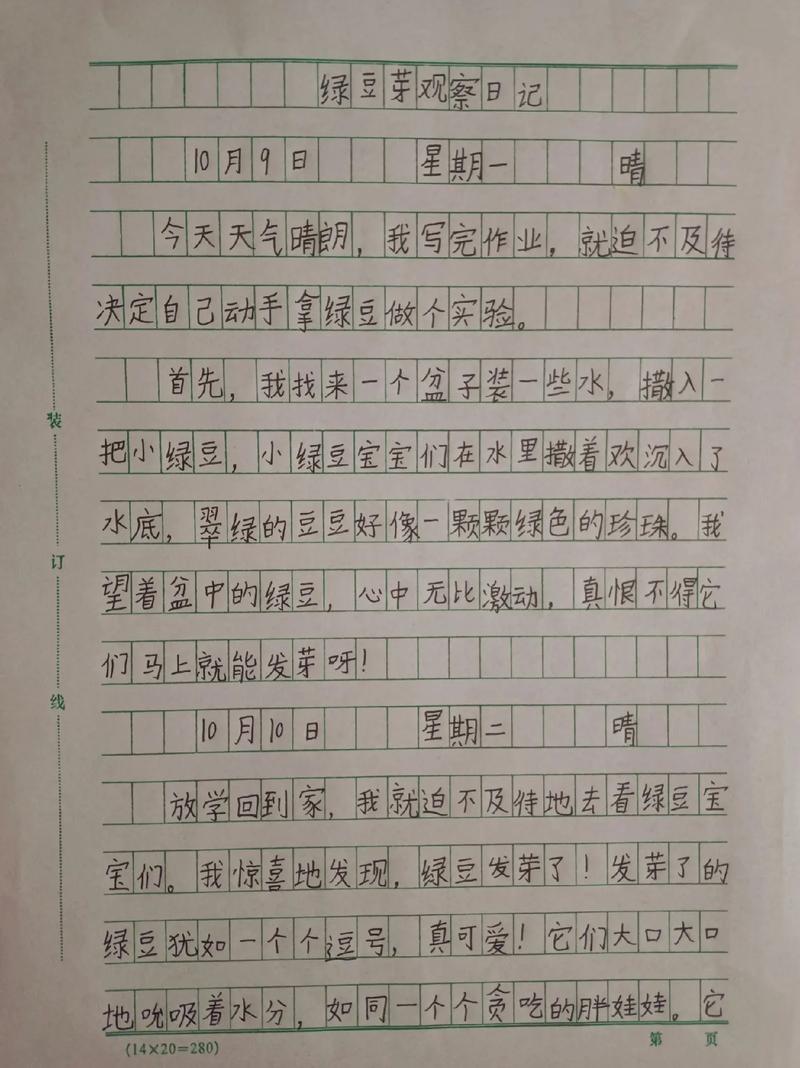 绿豆芽观察日记
10月9日 星期一 晴
今天天气晴朗，我写完作业，就迫不及待
决定自己动手拿绿豆做个实验。
首先，我找来一个盆子装一些水，撒入一
把小绿豆，小绿豆宝宝们在水里撒着欢沉入了
水底，翠绿的豆豆好像一颗颗绿色的珍珠。我
望着盆中的绿豆，心中无比激动，真恨不得它
们马上就能发芽呀！
10月10日 星期二 晴
放学回到家，我就迫不及待地去看绿豆宝
宝们。我惊喜地发现，绿豆发芽了！发芽了的
绿豆犹如一个个逗号，真可爱！它们大口大口
地吮吸着水分，如同一个个贪吃的胖娃娃。它
装
订
线
(14×20=280)
第 页